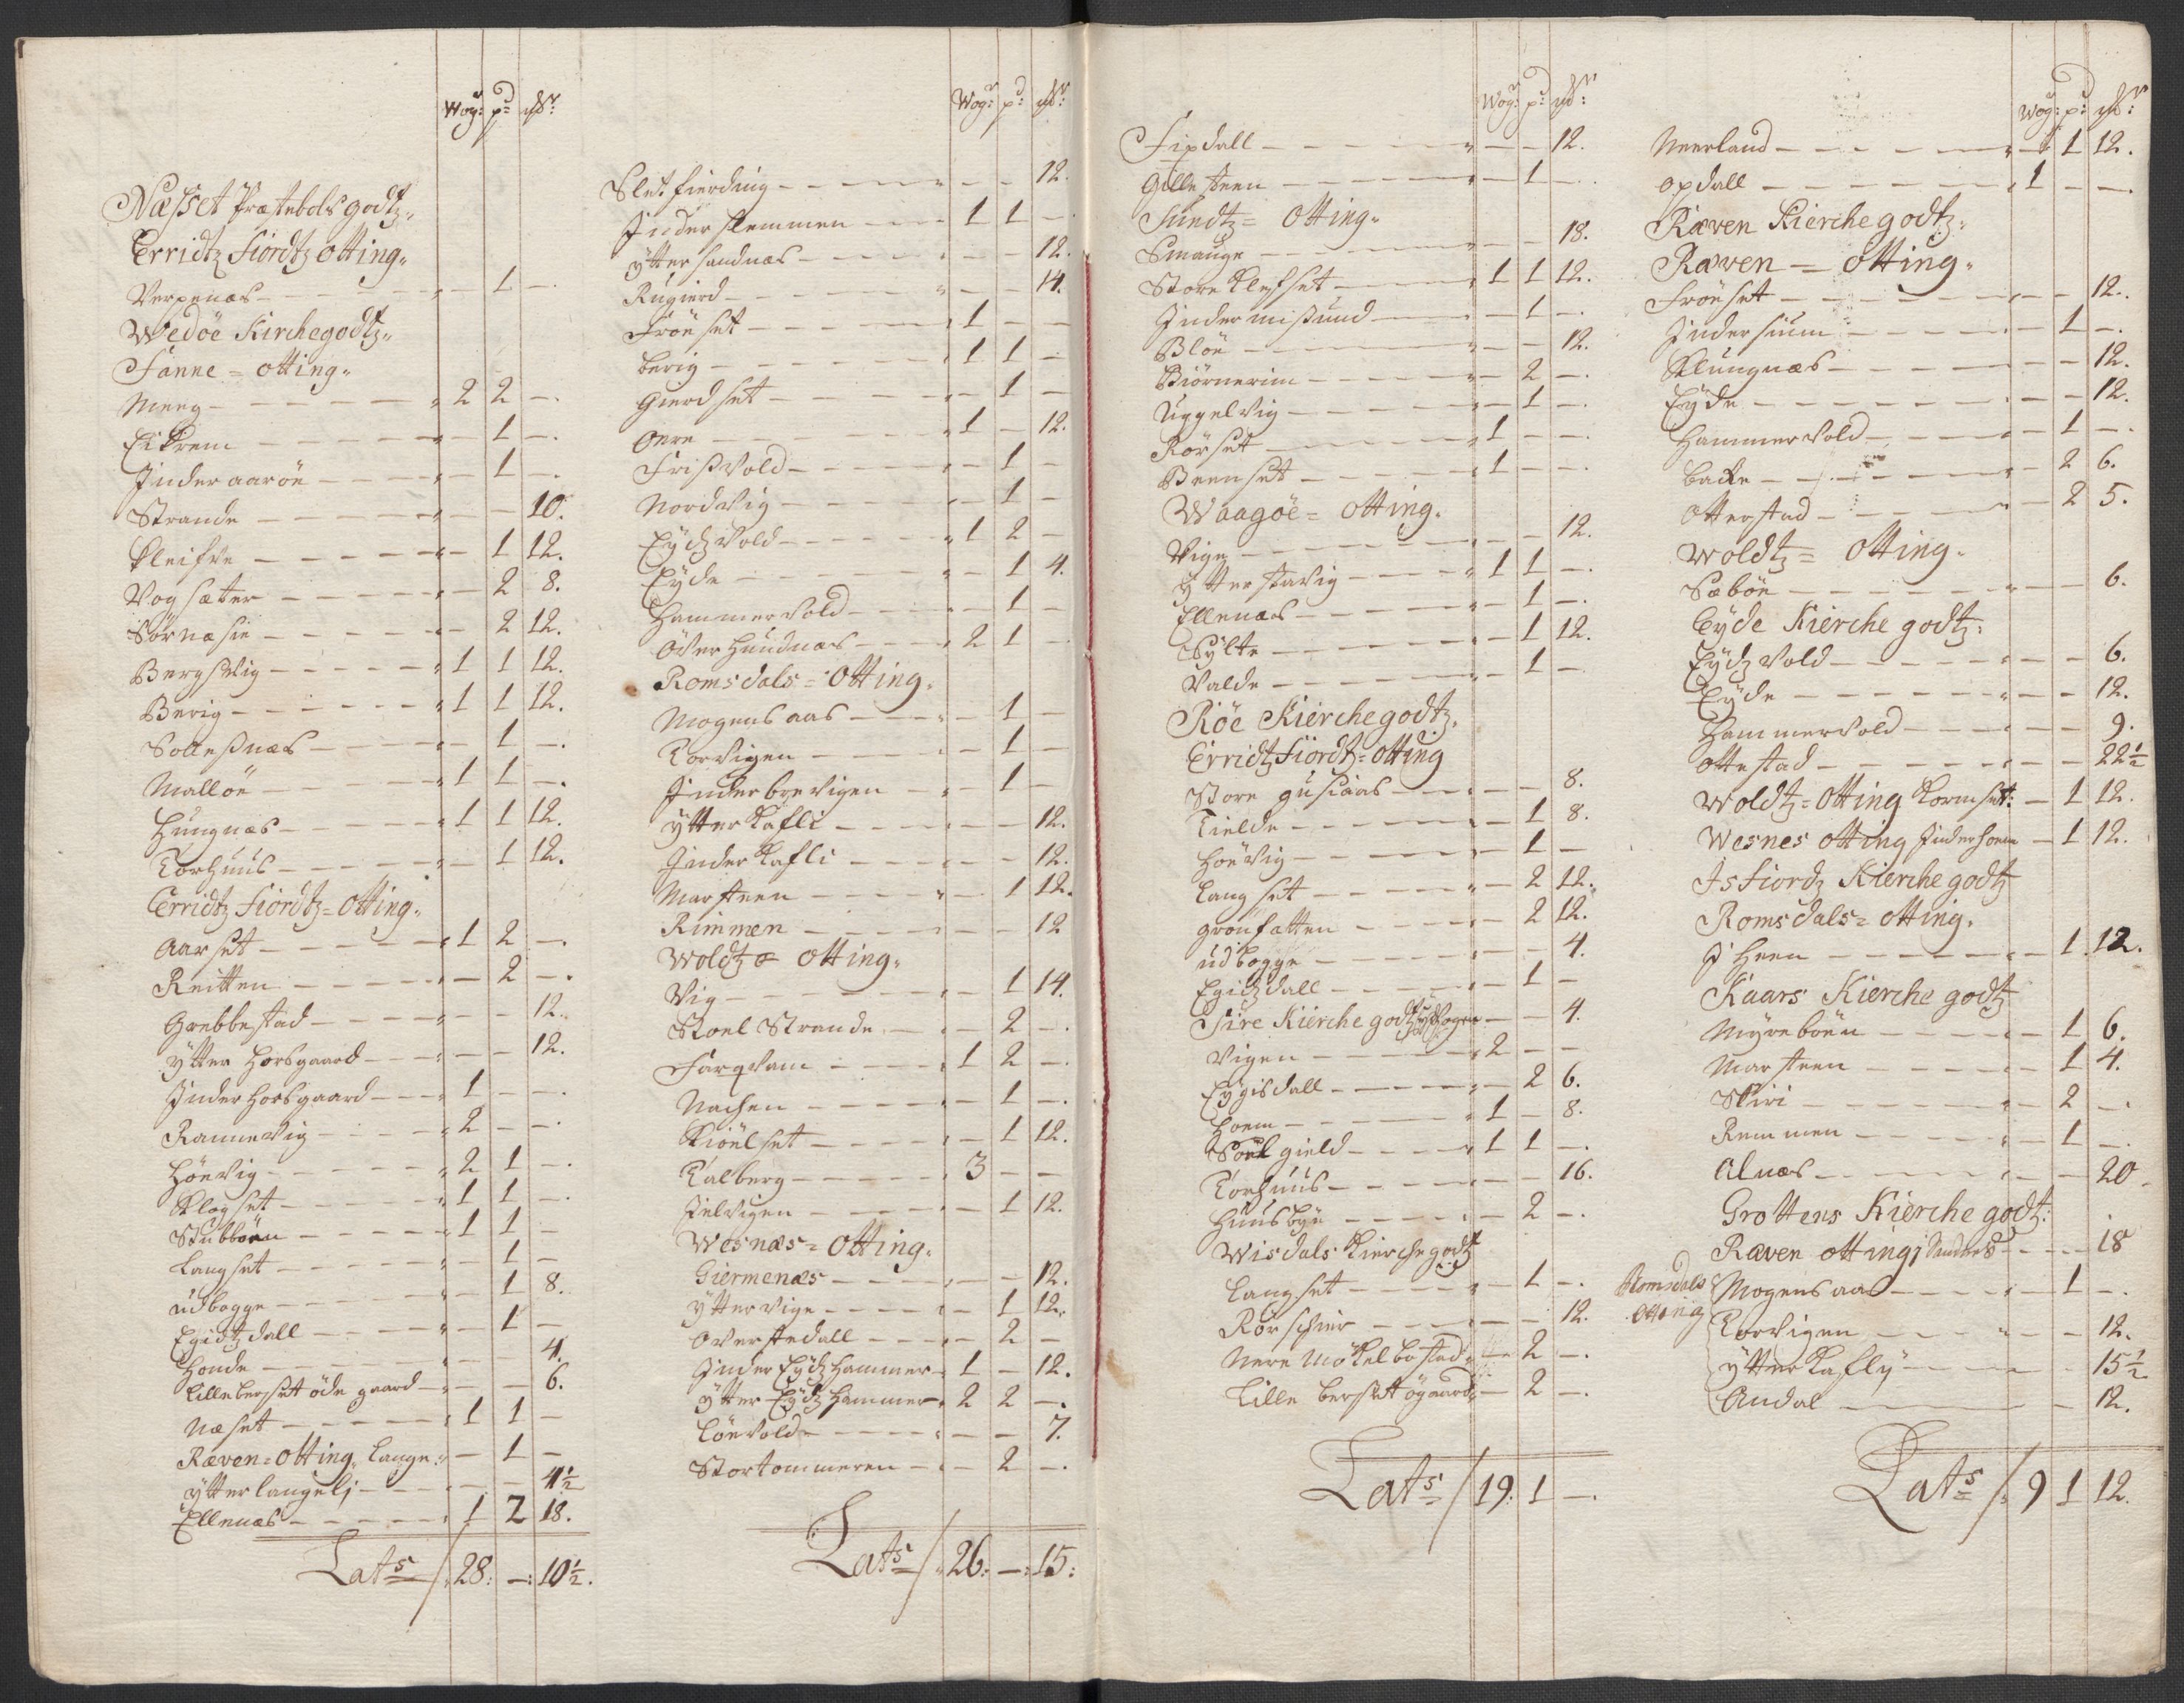 Wogr: pd: mkr:
Næsset Præstebols godtz,
Erridtz Fiordtz Otting,
Verpenæs - - 1 -
Wedöe Kirchegodtz,
Fanne = otting,
Meeg - 2 2 -
Eikrem - - 1 -
Inder aaröe - - 1 -
Strande - - - 10.
Kleifve - - 1 12.
Vog sæter - - 2 8.
Sörnæsie - - 2 12.
Bergsvig - 1 1 12.
Berig - 1 1 12.
Sollesnæs - - 1 -
Malloe - 1 1 -
Hungnæs - 1 1 12.
Torhuus - - 1 12.
Erridtz Fiordtz = Otting,
Aarset - 1 2 -
Reitten - - 2 -
Grebbestad - - - 12.
ytter Horsgaard - - - 12.
Inder Horsgaard - 1 - -
Rannevig - 2 - -
Höevig - 2 1 -
Klogset - 1 1 -
Stubböen - 1 1 -
Langset - - 1 -
udbogge - - 1 8.
Egidtzdall - - 1 -
Honde - - - 4.
Lilleberset öde gaard - - - 6.
Næset - 1 1 -
Ræven = Otting, Lange: - 1 -
ytter langeli - - - 4½
Ellenæs - 1 2 18.
Lats / 28: -: 10½.
Wogr: pd: mkr:
Sletfierding - - - 12.
Inder klemmen - 1 1 -
ytter sandnæs - - - 12.
Rugierd - - - 14.
Fröeset - 1 - -
berig - 1 1 -
Gierdset - - 1 -
Oere - 1 - 12.
Frisvold - - 1 -
Nordvig - - 1 -
Eydzvold - 1 2 -
Eyde - - 1 4.
Hammervold - - 1 -
Över Hundnæs - 2 1 -
Romsdals = Otting,
Mogens aas - - 1 -
Torvigen - - 1 -
Inder brevigen - - 1 -
ytter Kafli - - - 12.
Inder Kafli - - - 12.
Marsteen - - 1 12.
Rimmen - - - 12
Woldtz = Otting,
Vig - - 1 14.
Stoel Strande - - 2 -
Fargvam - 1 2 -
Nachen - - 1 -
Skiöelset - - 1 12.
Talberg - 3 - -
Jelvigen - - 1 12.
Wesnæs = Otting,
Giermenæs - - - 12.
ytter vige - - 1 12.
Overstedall - - 2 -
Inder Eydzhammer - 1 - 12.
ytter Eydzhammer - 2 2 -
Löevold - - - 7.
Stortommeren - - 2 -
Lats / 26: -: 15:
Wogr: pd: mkr:
Fixdall - - - 12.
Gillesteen - - 1 -
Sundtz = Otting,
Smauge - - - 18.
Store Klefset - 1 1 12.
Inder misund - - 1 -
Blöe - - - 12.
Biörnerim - - 2 -
Uggelvig - - 1 -
Rörset - 1 - -
Beenset - 1 - -
Waagöe = Otting.
Vige - - - 12.
ytterstavig - 1 1 -
Ellenæs - - 1 -
Sylte - - 1 12.
Valde - - 1 -
Röe Kierchegodtz,
Erridtz Fiordtz = Otting
Store gusiaas - - - 8.
Tielde - - 1 8.
Höevig - - 1 -
Langset - - 2 12.
grönfatten - - 2 12.
udbogge - - - 4.
Egidzdall - - 1 -
Sire Kierche godtz - - 4.
Vigen - 2 - -
Eygisdall - - 2 6.
Hoem - 1 - 8.
Soelgield - 1 1 -
Torhuus - - - 16.
Huusbye - - 2 -
Wisdals Kierchegodtz
Langset - - 1 -
Rörschier - - - 12.
Nere Mökelbosted - - 2 -
Lille berset ögaard - - 2 -
Lats / 19: 1 -
Wogr: pd: mkr:
Meerland - - 1 12.
opdall - 1 - -
Ræven Kierchegodtz,
Ræven = Otting,
Fröeset - - - 12.
Indersium - - 1 -
Klungnæs - - - 12.
Eyde - - - 12.
Hammervold - - 1 -
bakke - - 2 6.
Otterstad - - 2 5.
Woldtz = Otting,
Sæböe - - - 6.
Eyde Kierche godtz:
Eydzvold - - - 6.
Eyde - - - 12.
Hammervold - - - 9.
Ottestad - - - 22½
Woldtz = Otting Kormset: - 1 12.
Wesnes Otting Inderhoem - 1 12.
Isfiordz Kierche godtz
Romsdals = Otting,
I Heen - - 1. 12.
Kaars Kierche godtz
Myreböen - - 1 6.
Marsteen - - 1 4.
Skiri - - 2 -
Remmen - - 1 -
Alnæs - - - 20.
Grottens Kierche godtz:
Ræven otting, Sandnes - - - 18
Romsdals Otting
Mogens aas - - 1 -
Torvigen - - - 12.
ytter Kafly - - - 15½
Andal - - - 12.
Lats / 9 1 12.